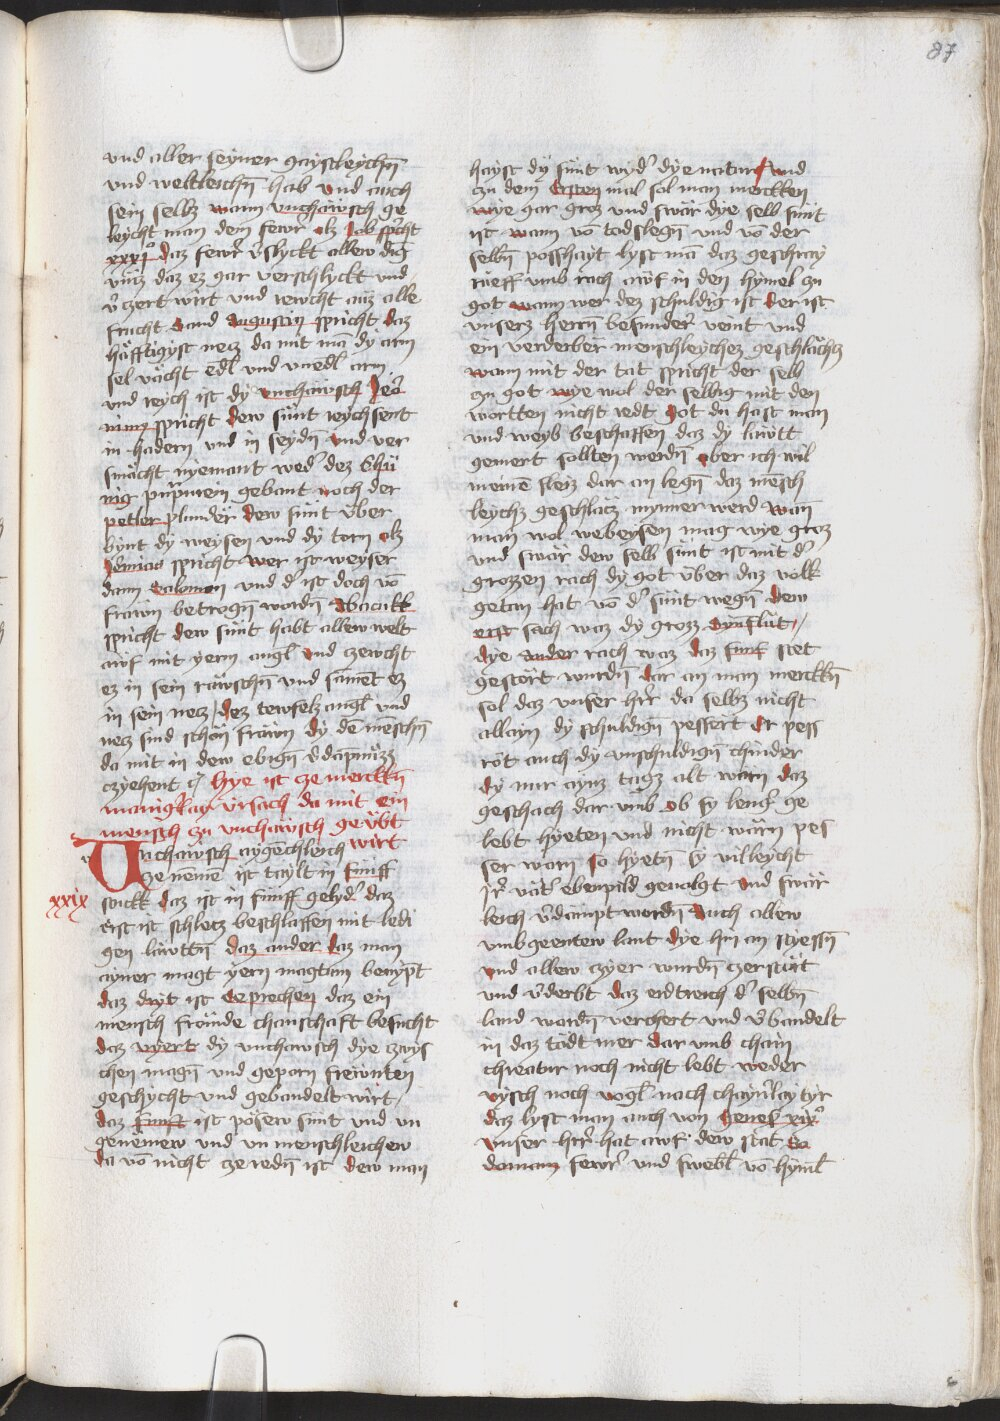 87
vnd aller seyner gaystleychn̄
vnd weltleichn̄ hab vnd auch
sein selbz wann vnchawsch ge
leycht man dem fewr alz Job spͥcht
xxxi° daz fewr v̓slyckt allew dīg
vncz daz ez gar verschlyckt vnd
v̓czert wirt vnd rewcht auz alle
frucht Sand Augustin spricht daz
häfftigist necz da mit mā dy arm
sel vächt edl vnd vnedl arm
vnd reych ist dy vnchawsch Jero
nimꝰ spricht dew sünt reychsent
in hadern vnd in seydn̄ vnd ver
smächt nyemant wed̓ dez chü
nig purpurein gebant noch der
petler plunder dew sünt v̈ber
bynt dy weysen vnd dy torn alz
spricht wer ist weyser
dann Salomon vnd d̓ ist doch vō
frawn betrogn̄ wordn̄ Abacukk
spricht dew sünt habt allew welt
awf mit yerm angl vnd czewcht
ez in sein räwschn̄ vnd samet ez
in sein necz / dez tewfelz angl vnd
necz sind schön frawn dy dē menschn̄
da mit in dew ebign̄ v̓dāpnüzz
czyehent Hye ist cze merckn̄
manigerlay vrsach da mit ein
mensch zu vnchawsch geübt
wirt
Vnchawsch aygenchleich
cze nemen ist taylt in fünff
xxix
stukk daz ist in fünff gelyd̓ daz
erst ist schlecz beschlaffen mit ledi
gen läwttn̄ daz ander daz man
ayner magt yern magtum benympt
daz dryt ist Eeprechen daz ein
mensch frömde chanschaft besucht
daz vyert dy vnchawsch dye zwys
chen magn̄ vnd geporn frewnten
geschycht vnd gehandelt wirt /
daz fünft ist pösew sünt vnd vn
genemew vnd vnmenschleichew
da vō nicht cze redn̄ ist dew man
hayst dy sünt wyd̓ dye natur vnd
zu dem Ersten mal sol man merckken
wye gar groz vnd swär dye selb sünt
ist wann vō todslegn̄ vnd vō der
selbn̄ posshayt lyst mā daz geschray
rüeff vmb rach awf in den hymel zu
got wann wer dez schuldig ist der ist
vnserz herrn̄ besunder veint vnd
ein verderber menschleychez geschlächcz
wann mit der tat spricht der selb
zu got wye wol der selbig mit den
wortten nicht redt got du hast man
vnd weyb beschaffen daz dy läwtt
gemert sollten werdn̄ aber ich wil
meinē fleiz dar an legn̄ daz mēsch
leychz geschläcz nymmer werd wan̄
man wol webeysen mag wye groz
vnd swär dew selb sünt ist mit d̓
grozzen rach dy got v̈ber daz volk
getan hat vō d̓ sünt wegn̄ dew
erst sach waz dy grozz Synflut /
dye ander rach waz daz fünf stet
gestört wurdn̄ dar an man merckn̄
sol daz vnser her̄ da selbz nicht
allain dy schuldign̄ pessert Er pess
rot auch dy vnschuldign̄ chinder
dy nur aynz tagz alt warn daz
geschach dar vmb ob sy leng̓ ge
lebt hyeten vnd nicht wärn pes
ser warn so hyetn̄ sy villeycht
Jr̓ vät̓ ebenpild geuolgt vnd swär
leich v̓dampt wordn̄ Auch allew
vmbgeentew lant dye hin an styessn̄
vnd allew czyer wurdn̄ czerstört
vnd v̓derbt daz erdtreich d̓ selbn̄
land wardn̄ verchert vnd v̓bandelt
in daz todt mer dar vmb chain
chreatur noch nicht lebt weder
vysch noch vogl nach chayn̓lay tyr
daz lyst man auch von Genes̓ xix°
vnser her̄ hat awf dew stat So
domam fewr̓ vnd swebl vō hyml